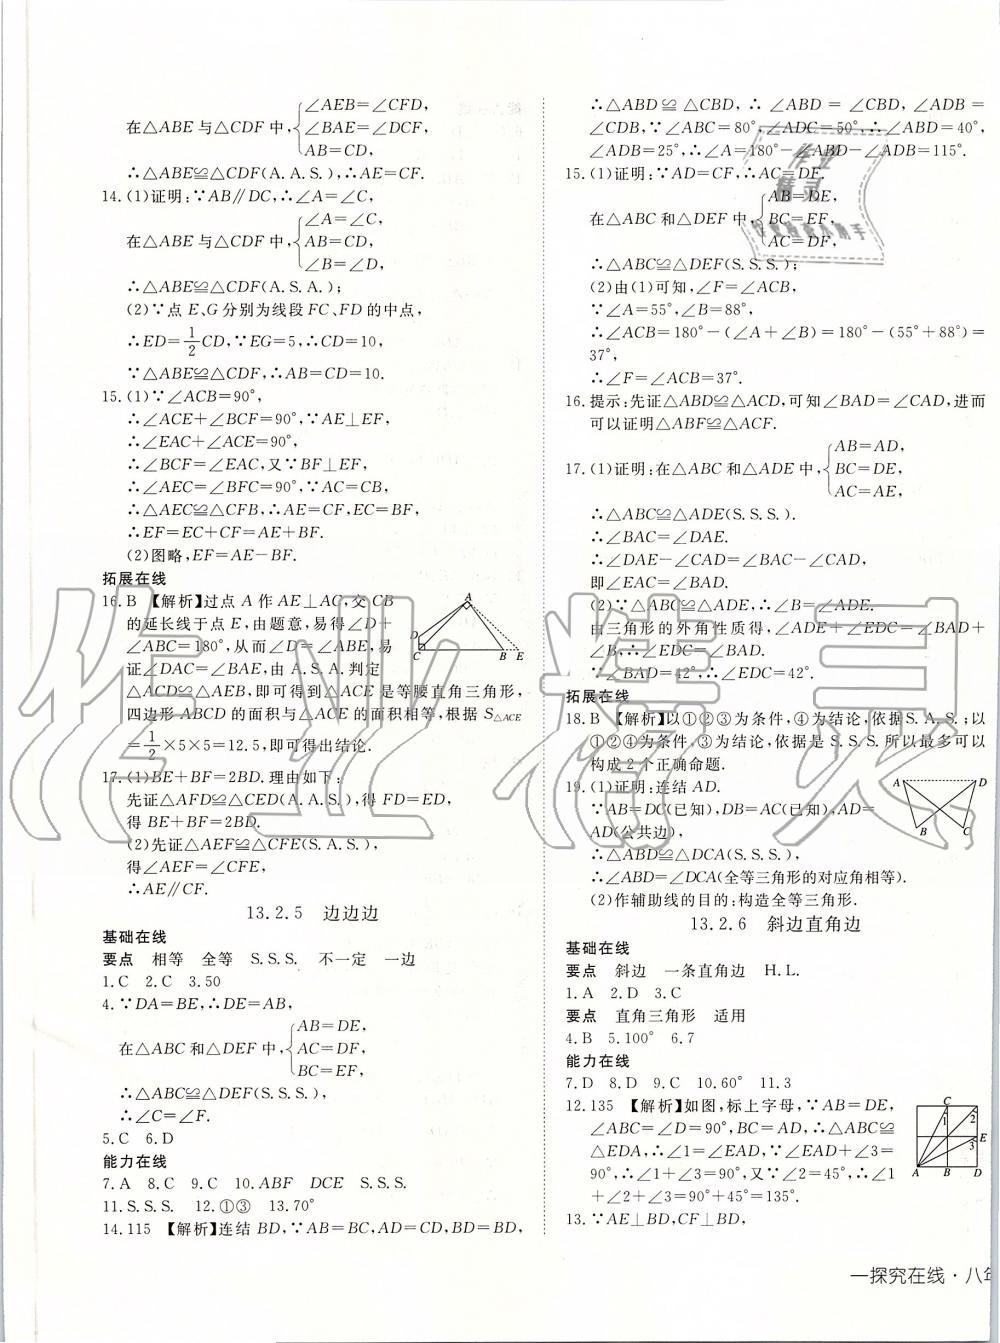 ∠AEB=∠CFD,
在△ABE与△CDF中,∠BAE=∠DCF,
AB=CD,
∴△ABE≌△CDF(A.A.S.),∴AE=CF.
14.(1)证明:∵AB∥DC,∴∠A=∠C,
∠A=∠C,
在△ABE与△CDF中,AB=CD,
∠B=∠D,
∴△ABE≌△CDF(A.S.A.);
(2)∵点E、G分别为线段FC、FD的中点,
∴ED=1/2CD,∵EG=5,∴CD=10,
∵△ABE≌△CDF,∴AB=CD=10.
15.(1)∵∠ACB=90°,
∴∠ACE+∠BCF=90°,∵AE⊥EF,
∴∠EAC+∠ACE=90°,
∴∠BCF=∠EAC,又∵BF⊥EF,
∴∠AEC=∠BFC=90°,∵AC=CB,
∴△AEC≌△CFB,∴AE=CF,EC=BF,
∴EF=EC+CF=AE+BF.
(2)图略,EF=AE−BF.
拓展在线
16.B 【解析】过点A作AE⊥AC,交CB
的延长线于点E,由题意,易得∠D+
∠ABC=180°,从而∠D=∠ABE,易
证∠DAC=∠BAE,由A.S.A.判定
△ACD≌△AEB,即可得到△ACE是等腰直角三角形,
四边形ABCD的面积与△ACE的面积相等,根据S△ACE
=1/2×5×5=12.5,即可得出结论.
A
D
C
B E
17.(1)BE+BF=2BD.理由如下:
先证△AFD≌△CED(A.A.S.),得FD=ED,
得BE+BF=2BD.
(2)先证△AEF≌△CFE(S.A.S.),
得∠AEF=∠CFE,
∴AE∥CF.
13.2.5 边边边
基础在线
要点 相等 全等 S.S.S. 不一定 一边
1.C 2.C 3.50
4.∵DA=BE,∴DE=AB,
AB=DE,
在△ABC和△DEF中,AC=DF,
BC=EF,
∴△ABC≌△DEF(S.S.S.),
∴∠C=∠F.
5.C 6.D
能力在线
7.A 8.C 9.C 10.ABF DCE S.S.S.
11.S.S.S. 12.①③ 13.70°
14.115 【解析】连结BD,∵AB=BC,AD=CD,BD=BD,
∴△ABD≌△CBD,∴∠ABD=∠CBD,∠ADB=
∠CDB,∵∠ABC=80°,∠ADC=50°,∴∠ABD=40°,
∠ADB=25°,∴∠A=180°−∠ABD−∠ADB=115°.
15.(1)证明:∵AD=CF,∴AC=DF.
AB=DE,
在△ABC和△DEF中,BC=EF,
AC=DF,
∴△ABC≌△DEF(S.S.S.);
(2)由(1)可知,∠F=∠ACB,
∵∠A=55°,∠B=88°,
∴∠ACB=180°−(∠A+∠B)=180°−(55°+88°)=
37°,
∴∠F=∠ACB=37°.
16.提示:先证△ABD≌△ACD,可知∠BAD=∠CAD,进而
可以证明△ABF≌△ACF.
AB=AD,
17.(1)证明:在△ABC和△ADE中,BC=DE,
AC=AE,
∴△ABC≌△ADE(S.S.S.).
∴∠BAC=∠DAE.
∴∠DAE−∠CAD=∠BAC−∠CAD.
即∠EAC=∠BAD.
(2)∵△ABC≌△ADE,∴∠B=∠ADE.
由三角形的外角性质得,∠ADE+∠EDC=∠BAD+
∠B,∴∠EDC=∠BAD.
∵∠BAD=42°,∴∠EDC=42°.
拓展在线
18.B 【解析】以①②③为条件,④为结论,依据S.A.S.;以
①②④为条件,③为结论,依据是S.S.S.所以最多可以
构成2个正确命题.
19.(1)证明:连结AD.
∵AB=DC(已知),DB=AC(已知),AD=
AD(公共边),
∴△ABD≌△DCA(S.S.S.),
∴∠ABD=∠DCA(全等三角形的对应角相等).
(2)作辅助线的目的:构造全等三角形.
A D
B C
13.2.6 斜边直角边
基础在线
要点 斜边 一条直角边 H.L.
1.A 2.D 3.C
要点 直角三角形 适用
4.B 5.100° 6.7
能力在线
7.D 8.D 9.C 10.60° 11.3
12.135 【解析】如图,标上字母,∵AB=DE,
∠ABC=∠D=90°,BC=AD,∴△ABC≌
△EDA,∴∠1=∠EAD,∵∠EAD+∠3=
90°,∴∠1+∠3=90°,又∵∠2=45°,∴∠1
+∠2+∠3=90°+45°=135°.
C
1 2
3 E
A B D
13.∵AE⊥BD,CF⊥BD,
一探究在线·八年
作业精灵
作业
精灵